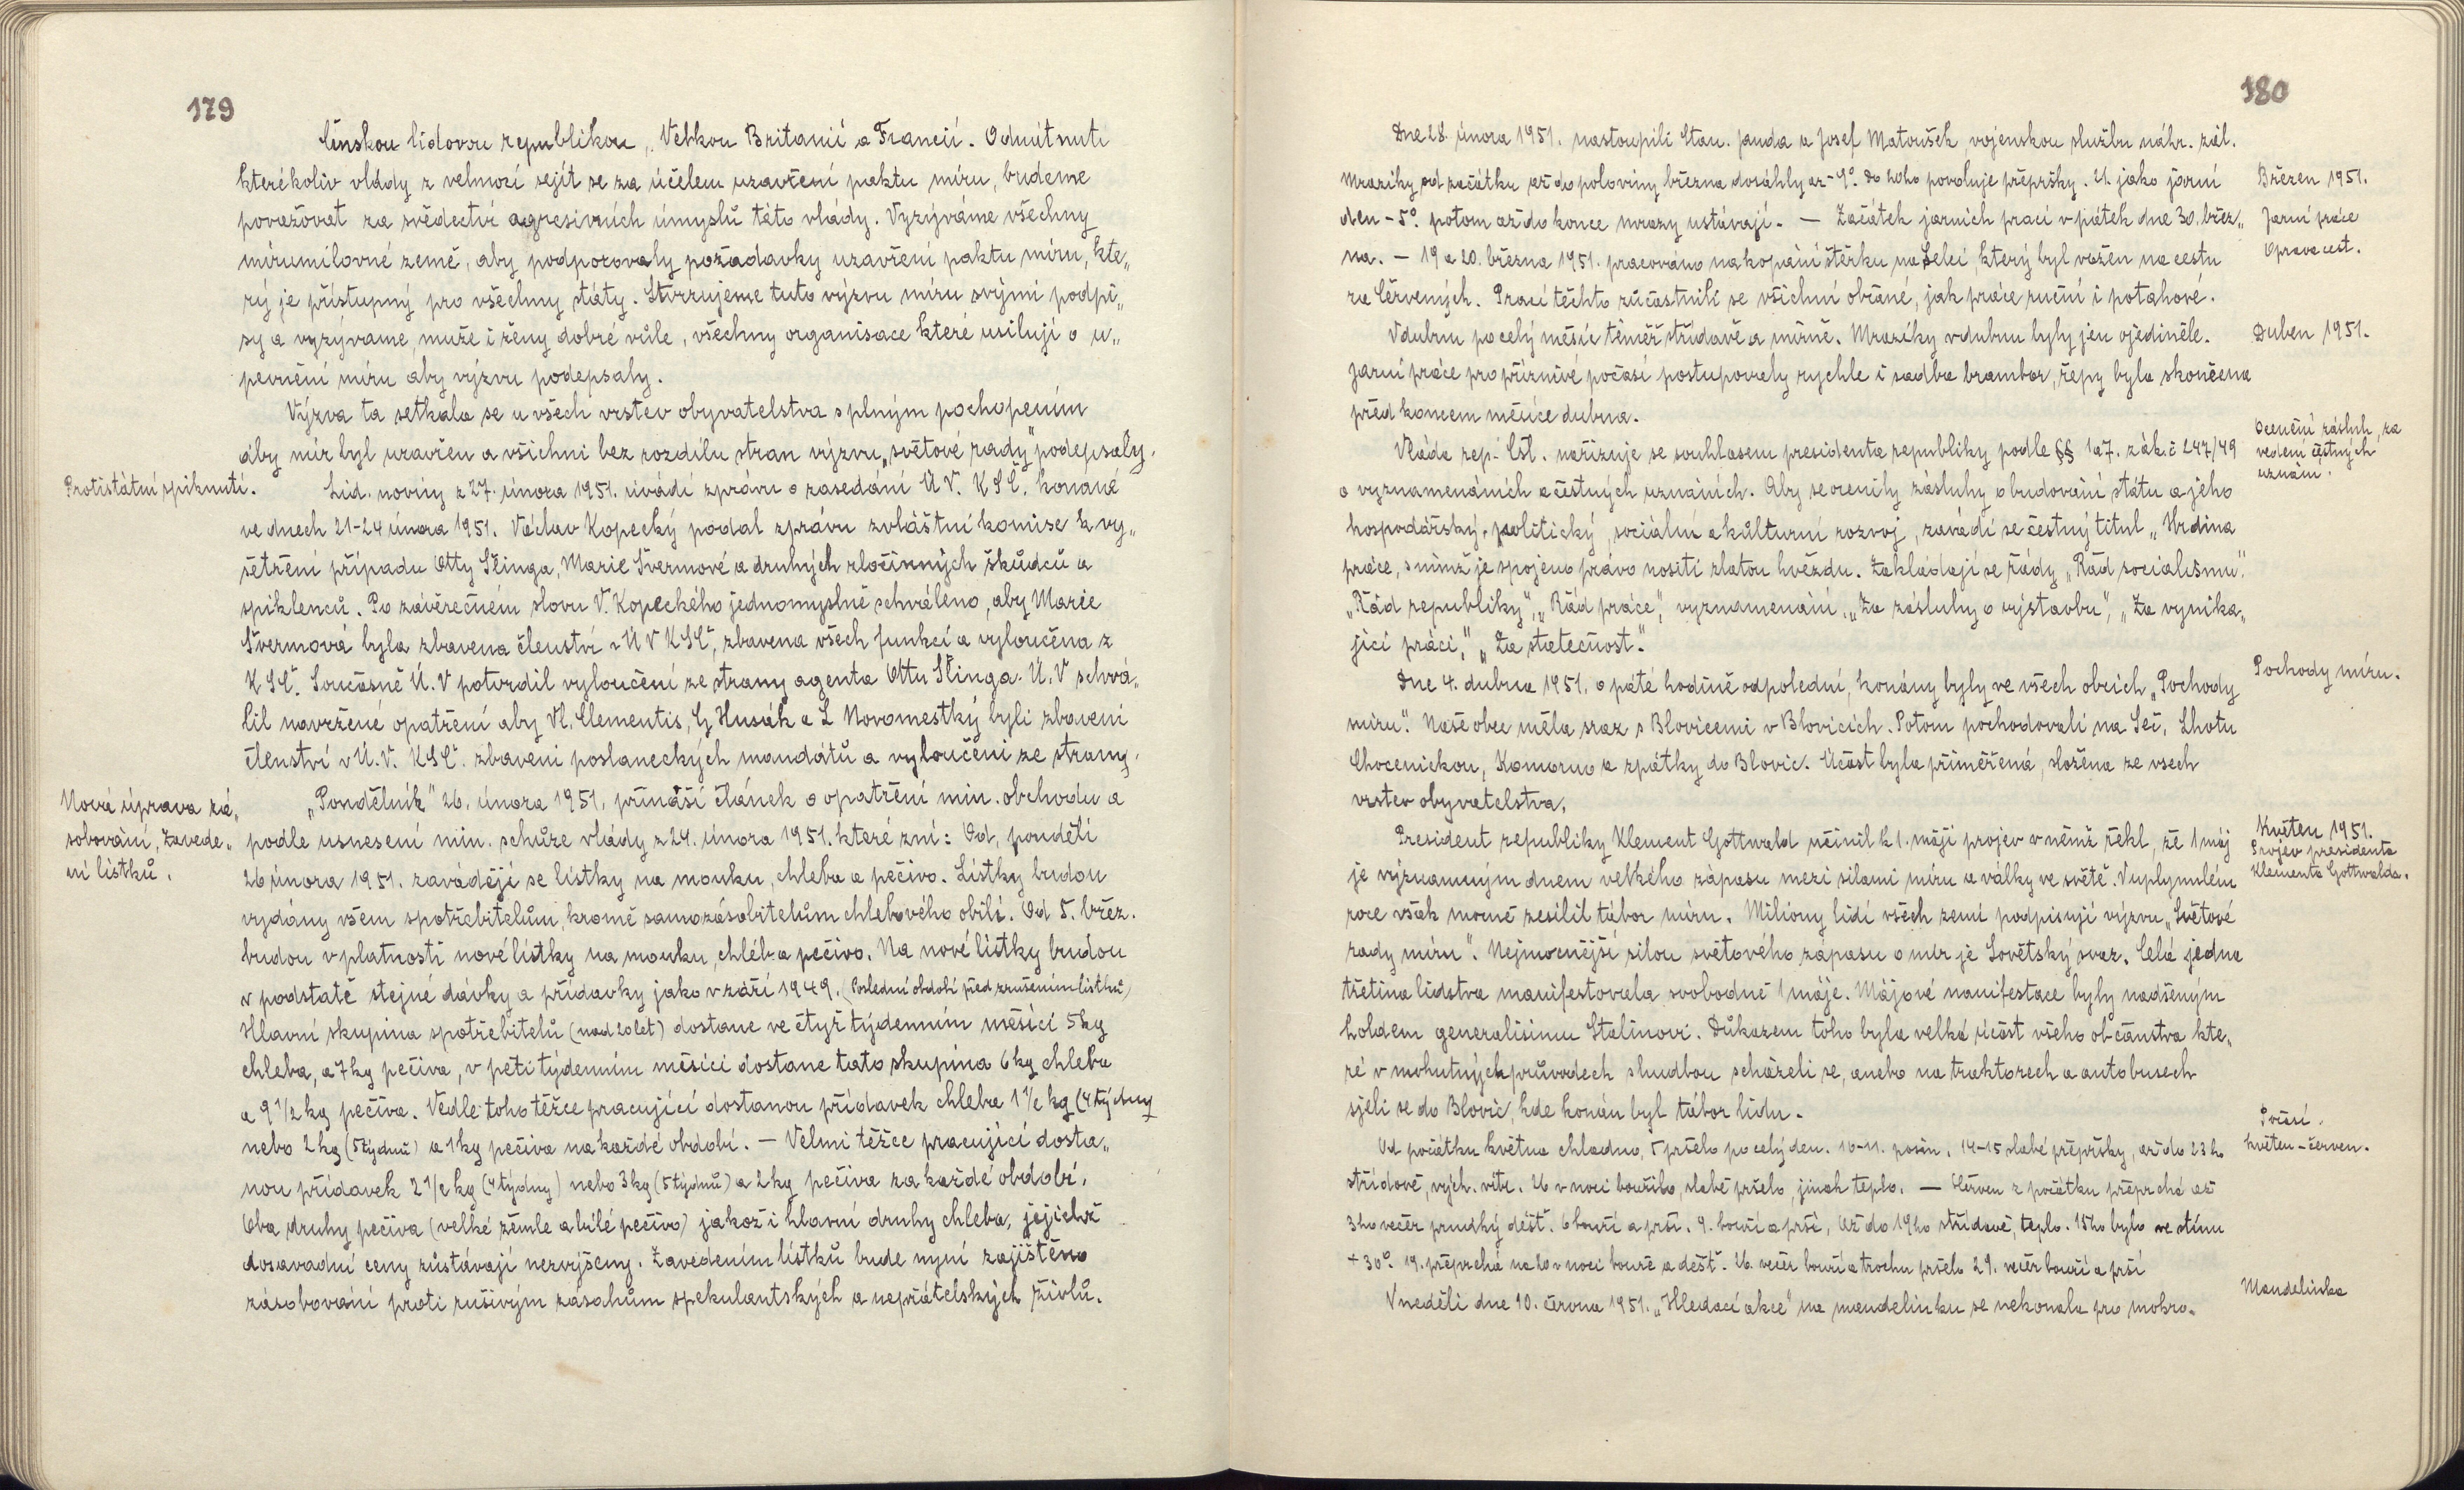 179
čínskou lidovou republikou, Velkou Britanií a Francií. Odmítnutí
kterékoliv vlády z velmocí sejít se za účelem uzavření paktu míru, budeme
považovat za svědectví agresivních úmyslů této vlády. Vyzýváme všechny
mírumilovné země, aby podporovaly požadavky uzavření paktu míru, kte„
rý je přístupný pro všechny státy. Stvrzujeme tuto výzvu míru svými podpi„
sy a vyzýváme, muže i ženy dobré vůle, všechny organisace které usilují o u„
pevnění míru aby výzvu podepsaly.
Výzva ta setkala se u všech vrstev obyvatelstva s plným pochopením
aby mír byl uzavřen a všichni bez rozdílu stran výzvu „světové rady" podepsaly.
Protistátní spiknutí.
Lid. noviny z 27. února 1951. uvádí zprávu o zasedání Ú V. K S Č. konané
ve dnech 21-24 února 1951. Václav Kopecký podal zprávu zvláštní komise k vy„
šetření případu Otty Šlinga, Marie Švermové a druhých zločinných škůdců a
spiklenců. Po závěrečném slovu V. Kopeckého jednomyslně schváleno, aby Marie
Švermová byla zbavena členství v Ú V KSČ, zbavena všech funkcí a vyloučena z
K S Č. Současně Ú. V potvrdil vyloučení ze strany agenta Ottu Šlinga. Ú. V schvá„
lil navržené opatření aby Vl. Clementis, G Husák a L Novomestký byli zbaveni
členství v Ú. V. KSČ. zbaveni poslaneckých mandátů a vyloučeni ze strany.
Nová úprava zá„
sobování, Zavede„
ní lístků.
„Pondělník" 26. února 1951. přináší článek o opatření min. obchodu a
podle usnesení mim. schůze vlády z 24. února 1951. které zní: Od, pondělí
26 února 1951. zavádějí se lístky na mouku, chleba a pečivo. Lístky budou
vydány všem spotřebitelům, kromě samozásobitelům chlebového obilí. Od 5. břez.
budou v platnosti nové lístky na mouku, chléb a pečivo. Na nové lístky budou
v podstatě stejné dávky a přídavky jako v září 1949. (Poslední období před zrušením lístků)
Hlavní skupina spotřebitelů (nad 20 let) dostane ve čtyř týdenním měsíci 5 kg
chleba, a 7 kg pečiva, v pěti týdenním měsíci dostane tato skupina 6 kg chleba
a 9 1/2 kg pečiva. Vedle toho těžce pracující dostanou přídavek chleba 1 1/2 kg (4 týdny
nebo 2 kg (5 týdnů) a 1 kg pečiva na každé období. — Velmi těžce pracující dosta„
nou přídavek 2 1/2 kg (4 týdny) nebo 3 kg (5 týdnů) a 2 kg pečiva za každé období.
Oba druhy pečiva (velké žemle a bílé pečivo) jakož i hlavní druhy chleba, jejichž
dosavadní ceny zůstávají nezvýšeny. Zavedením lístků bude nyní zajištěno
zásobování proti rušivým zásahům spekulantských a nepřátelských živlů.
180
Dne 28. února 1951. nastoupili Stan. Janda a Josef Matoušek vojenskou službu náhr. zál.
Březen 1951.
Mrazíky od začátku až do poloviny března dosáhly až - 9°. Do 20ho povoluje přepršky. 21. jako jarní
den - 5°. potom až do konce mrazy ustávají. — Začátek jarních prací v pátek dne 30. břez„
Jarní práce
na. — 19 a 20. března 1951. pracováno na kopání štěrku na Seleí, který byl vožen na cestu
Oprava cest.
za Červených. Prací těchto zúčastnili se všichni občané, jak práce ruční i potahové.
Duben 1951.
V dubnu po celý měsíc téměř střídavě a mírně. Mrazíky v dubnu byly jen ojediněle.
Jarní práce pro příznivé počasí postupovaly rychle i sadba brambor, řepy byla skončena
před koncem měsíce dubna.
Ocenění zásluh, za
vedení čestných
uznání.
Vláda rep. Čsl. nařizuje se souhlasem presidenta republiky podle §§ 1 a 7. zák. č 247/49
o vyznamenáních a čestných uznáních. Aby se ocenily zásluhy o budování státu a jeho
hospodářský, politický, sociální a kulturní rozvoj, zavádí se čestný titul „Hrdina
práce, s nímž je spojeno právo nositi zlatou hvězdu. Zakládají se řády „Řád socialismu".
„Řád republiky", „Řád práce", vyznamenání, „Za zásluhy o výstavbu", „Za vynika„
jící práci," „Za statečnost."
Pochody míru.
Dne 4. dubna 1951. o páté hodině odpolední, konány byly ve všech obcích „Pochody
míru". Naše obec měla sraz s Blovicemi v Blovicích. Potom pochodovali na Seč, Lhotu
Chocenickou, Komorno a zpátky do Blovic. Účast byla přiměřená, složena ze všech
vrstev obyvatelstva.
Květen 1951.
Projev presidenta
Klementa Gottwalda.
President republiky Klement Gottwald učinil k 1. máji projev v němž řekl, že 1 máj
je významným dnem velkého zápasu mezi silami míru a války ve světě. V uplynulém
roce však mocně zesílil tábor míru. Miliony lidí všech zemí podpisují výzvu „Světové
rady míru". Nejmocnější silou světového zápasu o mír je Sovětský svaz. Celá jedna
třetina lidstva manifestovala svobodně 1 máje. Májové manifestace byly nadšeným
holdem generalisimu Stalinovi. Důkazem toho byla velká účast všeho občanstva kte„
ré v mohutných průvodech s hudbou scházeli se, anebo na traktorech a autobusech
sjeli se do Blovic, kde konán byl tábor lidu.
Počasí.
květen - červen.
Od počátku května chladno, 5 pršelo po celý den. 10-11. posin. 14-15 slabé přepršky, až do 23 ho
střídavě, vých. vítr. 26 v noci bouřilo, slabě pršelo, jinak teplo. — Červen z počátku přeprchá až
3 ho večer prudký déšť. 6 bouří a prší. 9. bouří a prší, Až do 19 ho střídavě, teplo. 15 ho bylo ve stínu
+ 30°. 19. přeprchá na 20 v noci bouře a déšť. 26. večer bouří a trochu pršelo 29. večer bouří a prší
Mandelinka
V neděli dne 10. června 1951. „Hledací akce" na mandelinku se nekonala pro mokro„